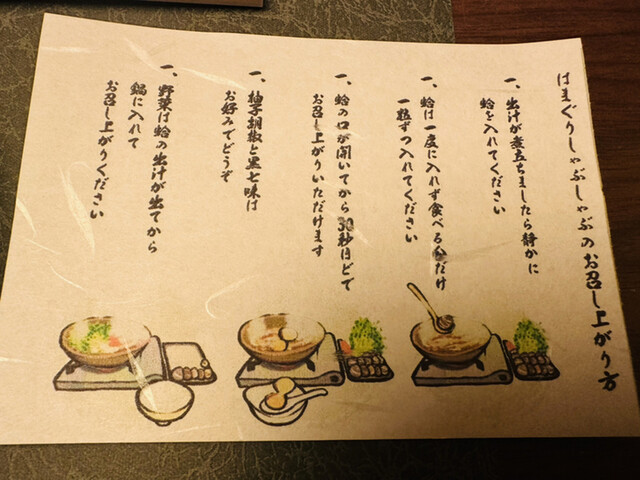 はまぐりしゃぶしゃぶのお召し上がり方
一、出汁が煮立ちましたら静かに
蛤を入れてください
一、蛤は一度に入れず食べる分だけ
一粒ずつ入れてください
一、蛤の口が開いてから30秒ほどで
お召し上がりいただけます
一、柚子胡椒と黒七味は
お好みでどうぞ
一、野菜は蛤の出汁が出てから
鍋に入れて
お召し上がりください